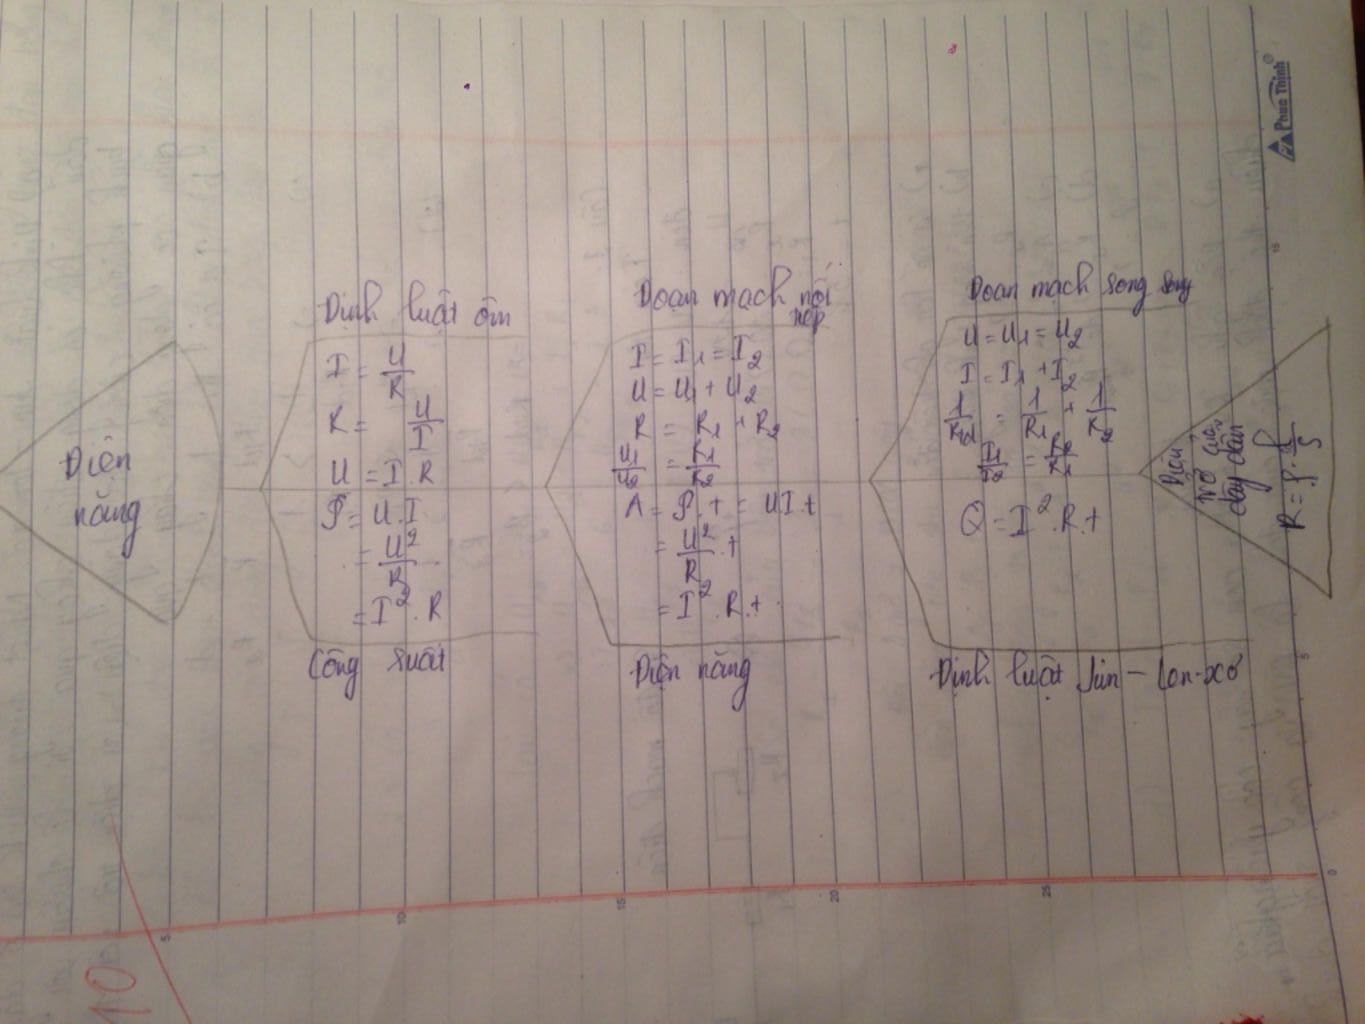 Điện
năng
Định luật ôm
I = U/R
R = U/I
U = I.R
P = U.I
= U²/R
= I².R
Công suất
Đoạn mạch nối
tiếp
I = I1 = I2
U = U1 + U2
R = R1 + R2
U1/U2 = R1/R2
A = P.t = UI.t
= U²/R.t
= I².R.t
Điện năng
Đoạn mạch song song
U = U1 = U2
I = I1 + I2
1/Rtđ = 1/R1 + 1/R2
Q = I².R.t
Định luật Jun - Len-xơ
Điện
trở của
dây dẫn
R = ρ.l/S
Phúc Thịnh
10
5
10
15
20
25
0
5
10